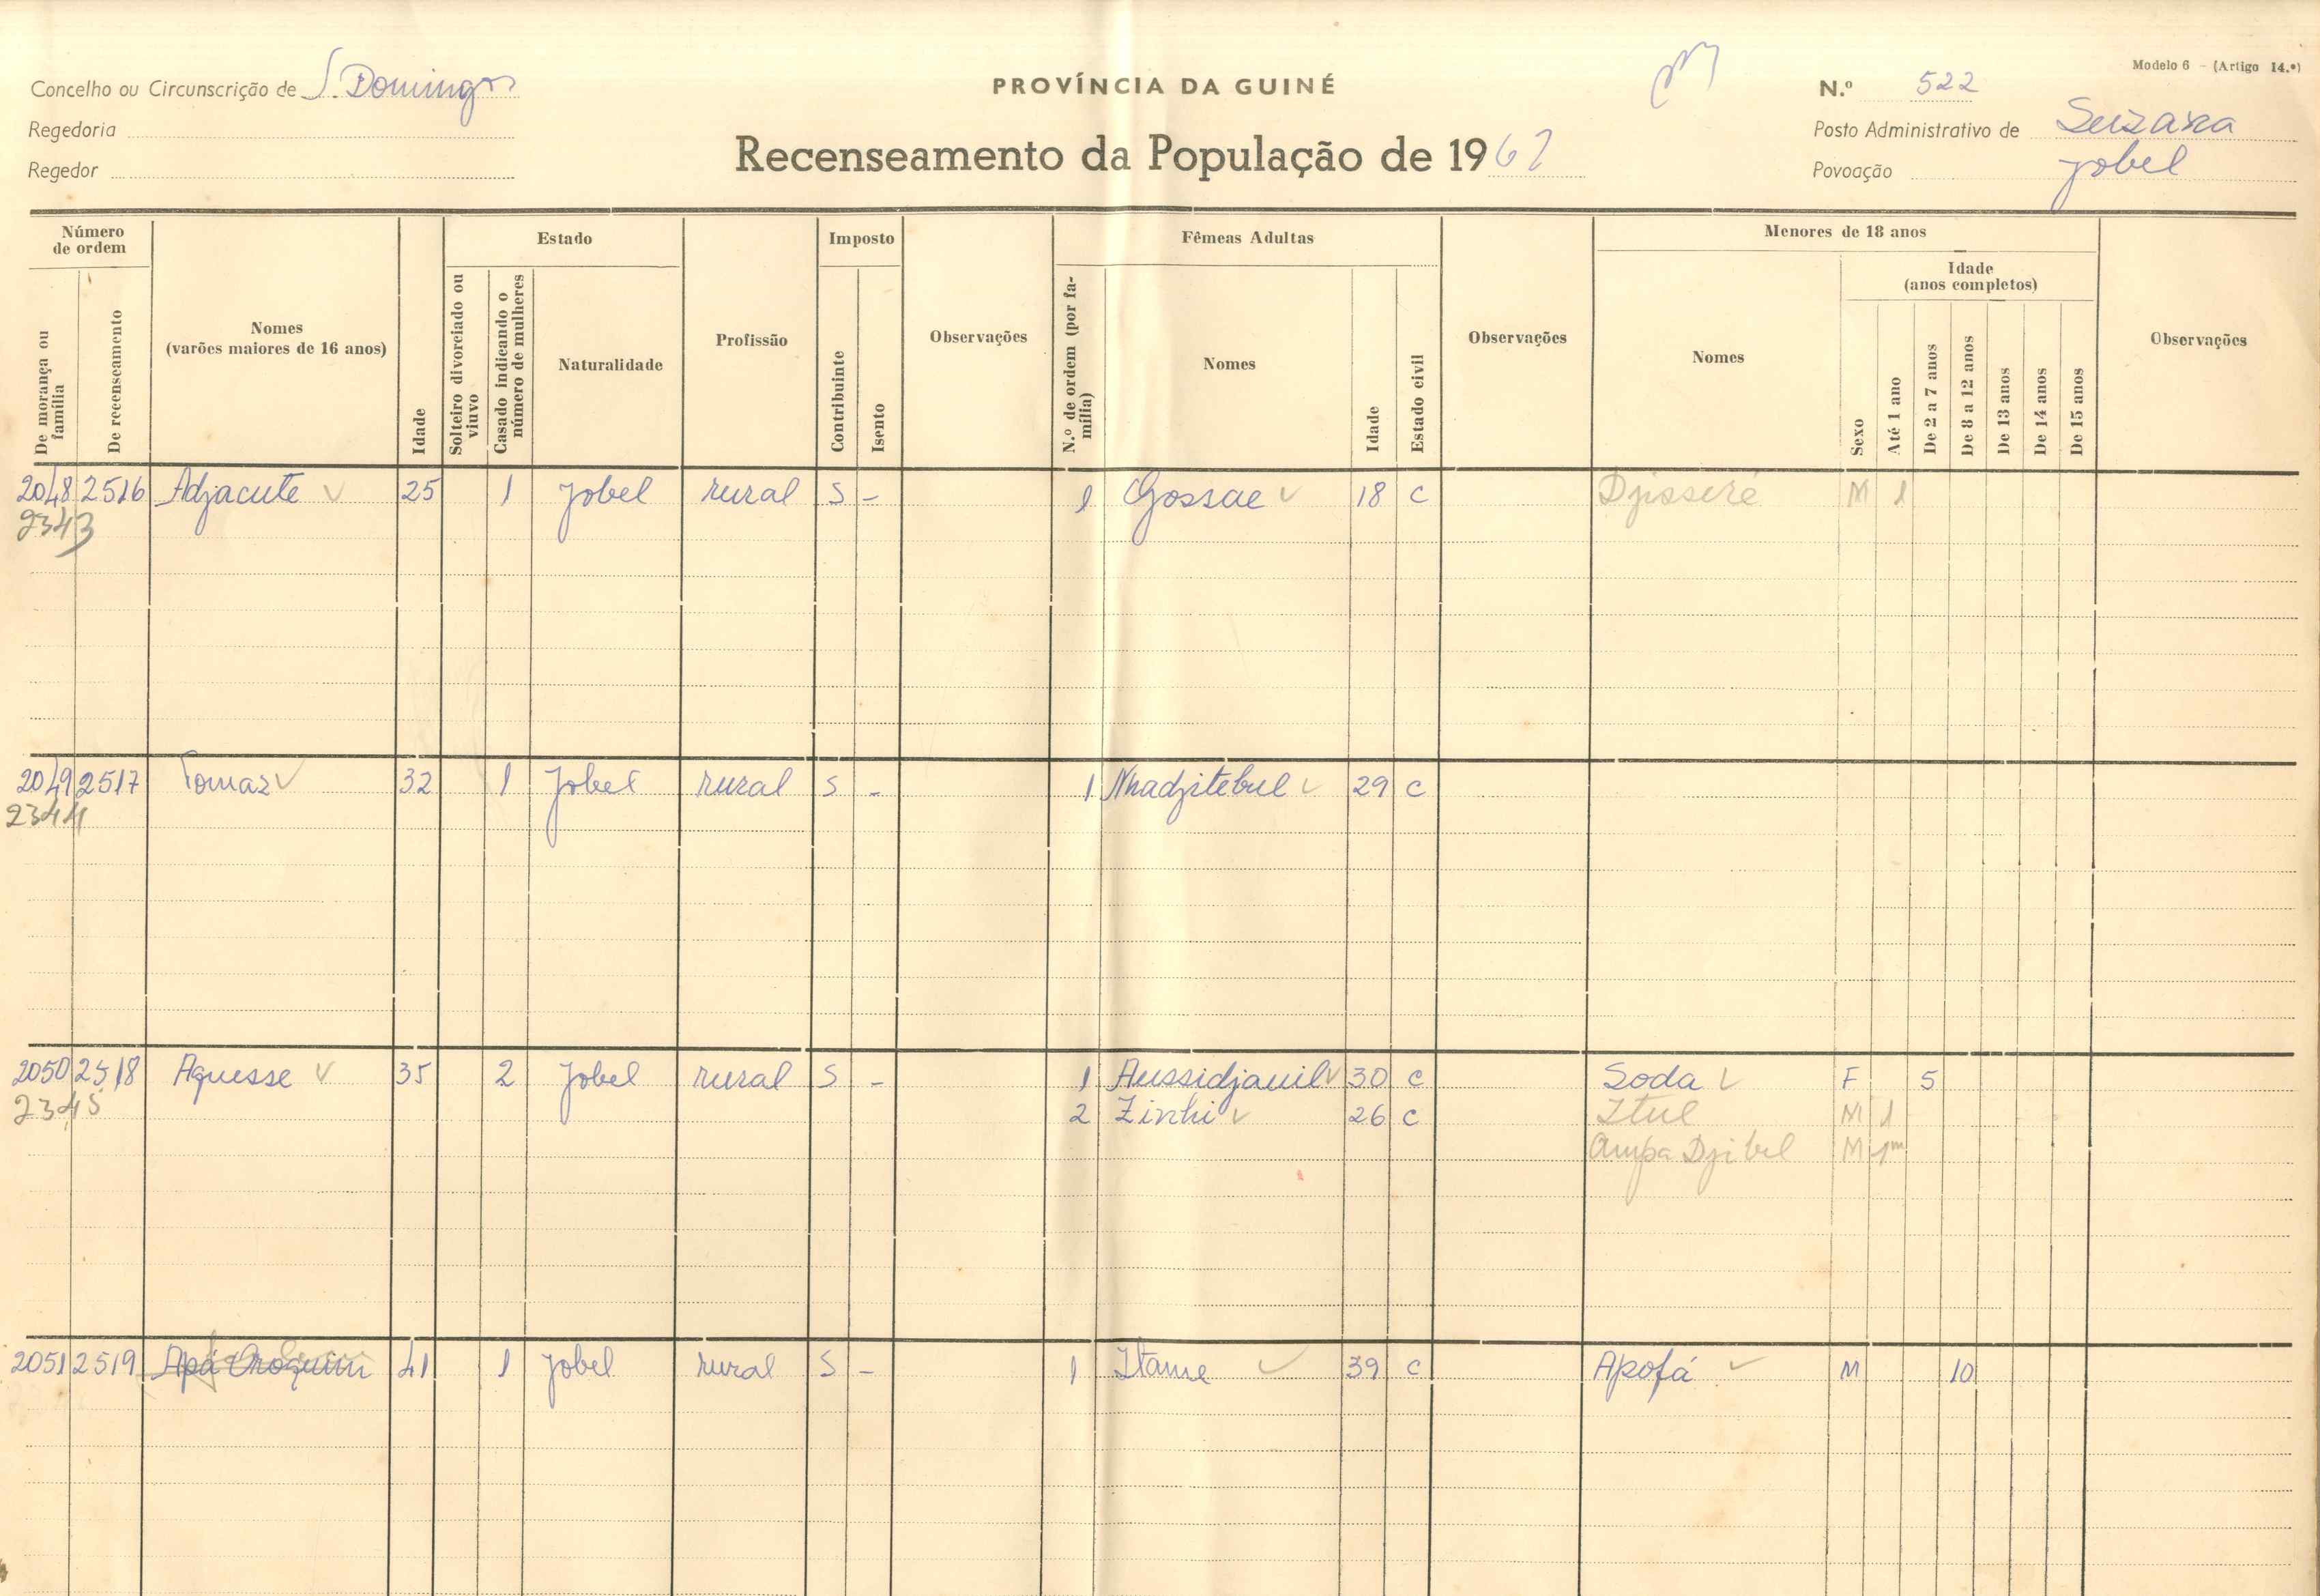 Modelo 6 - (Artigo 14.º)
Concelho ou Circunscrição de S. Domingos
PROVÍNCIA DA GUINÉ
N.º 522
Regedoria
Recenseamento da População de 196
Posto Administrativo de Suzana
Regedor
Povoação Jobel
Número de ordem
Estado
Imposto
Fêmeas Adultas
Menores de 18 anos
Idade (anos completos)
De morança ou família
De recenseamento
Nomes (varões maiores de 16 anos)
Idade
Solteiro divorciado ou viuvo
Casado indicando o número de mulheres
Naturalidade
Profissão
Contribuinte
Isento
Observações
N.º de ordem (por família)
Nomes
Idade
Estado civil
Observações
Nomes
Sexo
Até 1 ano
De 2 a 7 anos
De 8 a 12 anos
De 13 anos
De 14 anos
De 15 anos
Observações
2048 2516 Adjacute 25 1 Jobel rural S - 1 Gossae 18 C Djisseré M 1
2343
2049 2517 Tomaz 32 1 Jobel rural S - 1 Nhadjitebul 29 C
2344
2050 2518 Aquesse 35 2 Jobel rural S - 1 Aussidjauil 30 C Soda F 5
2345 2 Zinhi 26 C Itul M 1
Ampa Djibel M 1m
2051 2519 Apá Oroquim 41 1 Jobel rural S - 1 Itame 39 C Apofá M 10